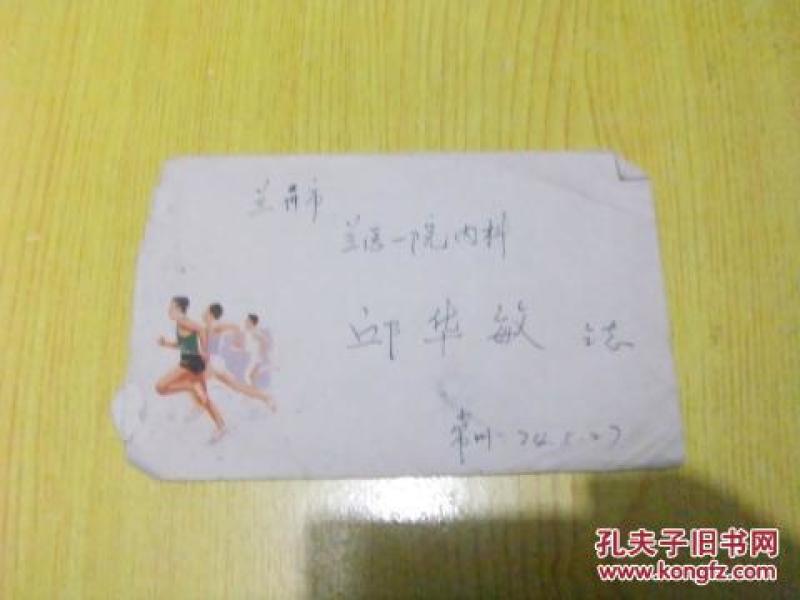 兰州市
兰医一院内科
邱华敏 同志
常州 74.5.27
孔夫子旧书网
www.kongfz.com